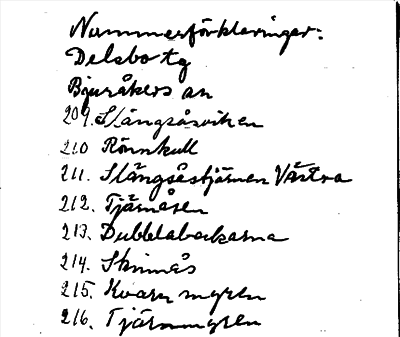 Nummerförklaringer:
Delsbo tg
Bjuråkers sn
209. Slängsåsviken
210 Rönnkull
211. Slängsåstjärnen Västra
212. Tjärnåsen
213. Dubblabackarna
214. Skinnås
215. Kvarnmyren
216. Tjärnmyren